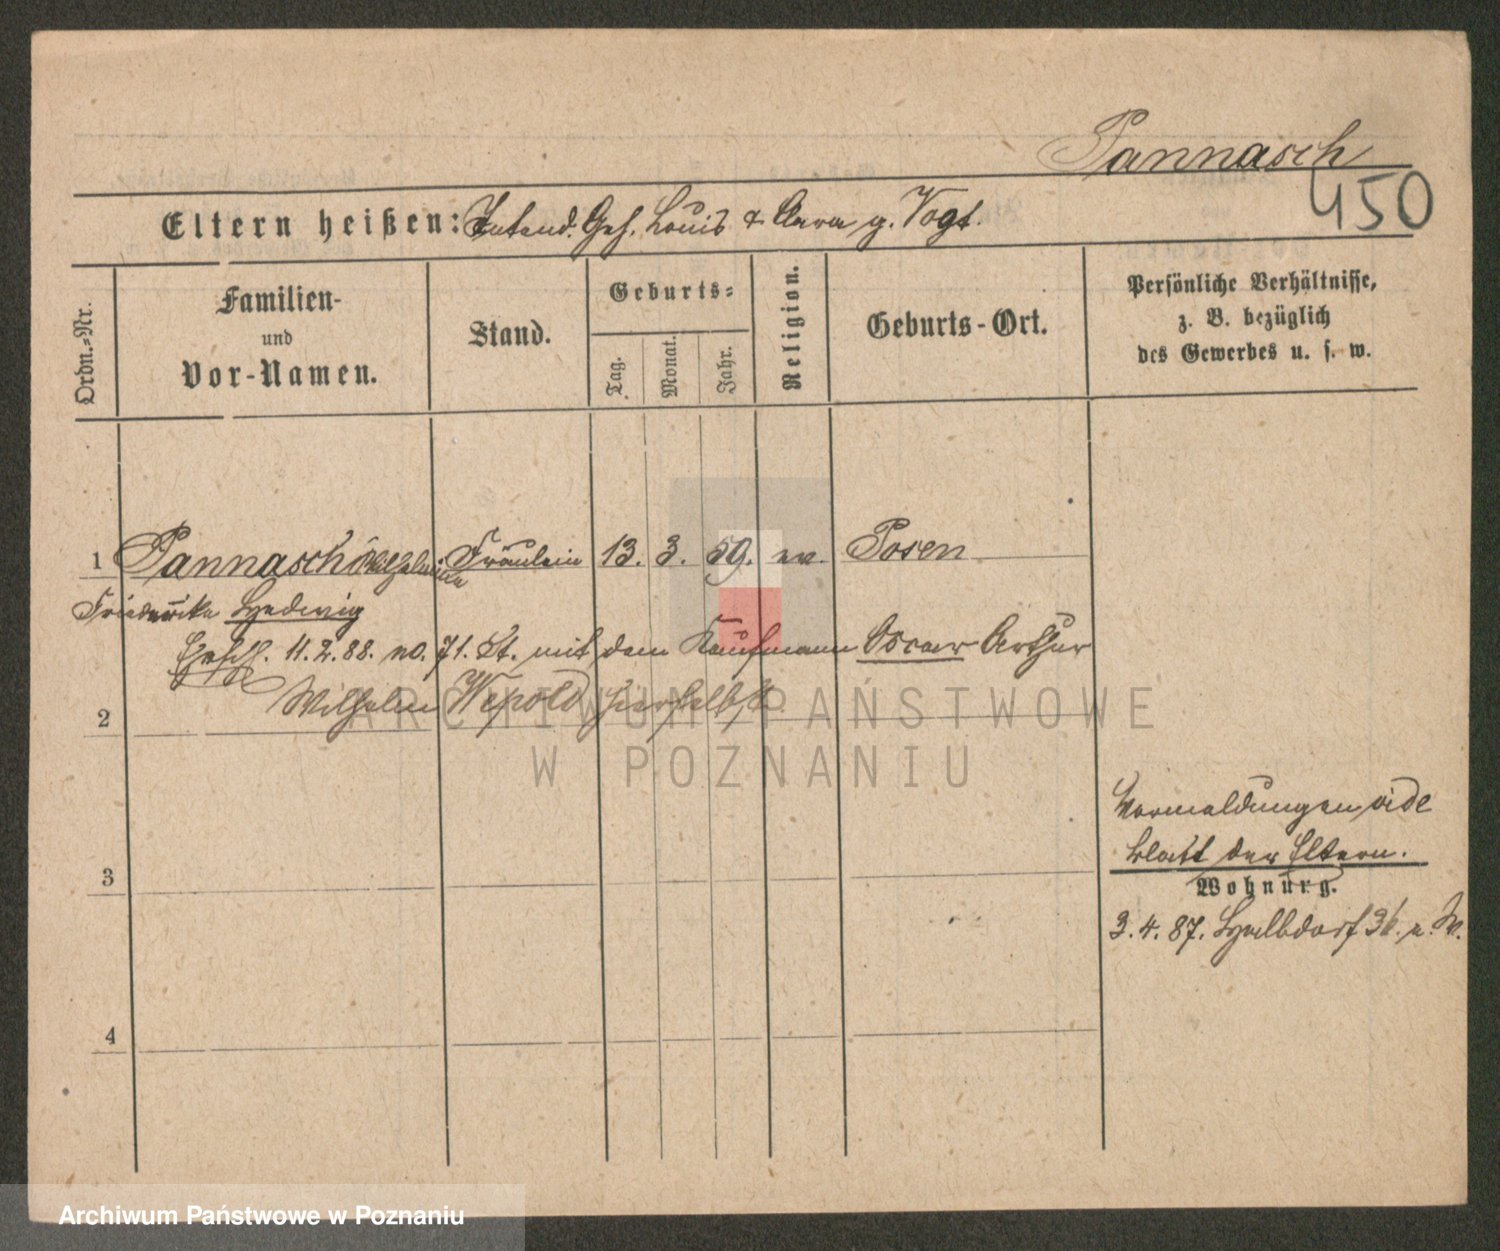 Pannasch
450
Eltern heißen: Intend. Geh. Louis & Clara g. Vogt.
Ordn.-Nr.
Familien-
und
Vor-Namen.
Stand.
Geburts-
Tag.
Monat.
Jahr.
Religion.
Geburts-Ort.
Persönliche Verhältnisse,
z. B. bezüglich
des Gewerbes u. s. w.
1 Pannasch Wilhelmine Fräulein 13. 3. 59. ev. Posen
Friederike Hedwig
11.2.88. no. 71. St. mit dem Kaufmann Oscar Arthur
2 Wilhelm Wepold hierselbst
3
4
Vormeldungen vide
Blatt der Eltern.
Wohnung.
3.4.87. Halbdorf
ARCHIWUM PAŃSTWOWE
W POZNANIU
Archiwum Państwowe w Poznaniu